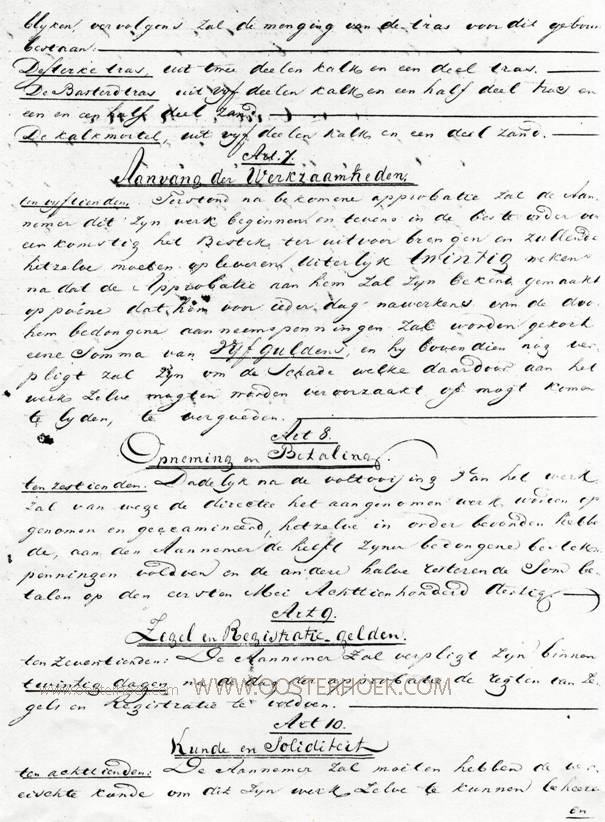 blyken, vervolgens zal de menging van de tras voor dit gebouw
bestaan.
De sterke tras, uit twee deelen kalk en een deel tras.
De Basterdtras uit vyf deelen kalk en een half deel tras en
een en een half deel zand.
De kalkmortel, uit vyf deelen kalk en een deel zand.
Art. 7.
Aanvang der Werkzaamheden.
ten vyftienden. Terstond na bekomene approbatie zal de Aan-
nemer dit zyn werk beginnen en tevens in de beste order over
eenkomstig het Bestek, ter uitvoer brengen en zullende
hetzelve moeten opleveren uiterlyk twintig weken
na dat de Approbatie aan hem zal zyn bekend gemaakt
op poene dat hem voor ieder dag nawerkens van de door
hem bedongene aanneemspenningen zal worden gekort
eene Somma van Vyf guldens, en hy bovendien nog ver-
pligt zal zyn om de Schade welke daardoor aan het
werk zelve mogten worden veroorzaakt of mogt komen
te lyden, te vergoeden.
Art 8.
Opneming en Betaling.
ten zestienden. Dadelyk na de voltooijing van het werk
zal van wege de directie het aangenomen werk worden op
genomen en geexamineerd, hetzelve in order bevonden hebben
de, aan den Aannemer de helft zyner bedongene besteks
penningen voldoen en de andere halve resterende Som be-
talen op den eersten Mei Achttienhonderd
Art 9.
Zegel en Registratie-gelden.
ten zeventienden: De Aannemer zal verpligt zyn binnen
twintig dagen na de dag der approbatie de regten van Ze-
gels en Registratie te voldoen.
WWW.OOSTERHOEK.COM
Art 10.
Kunde en Soliditeit
ten achttienden: De Aannemer zal moeten hebben de ver-
eischte kunde om dit zyn werk zelve te kunnen beheeren
en